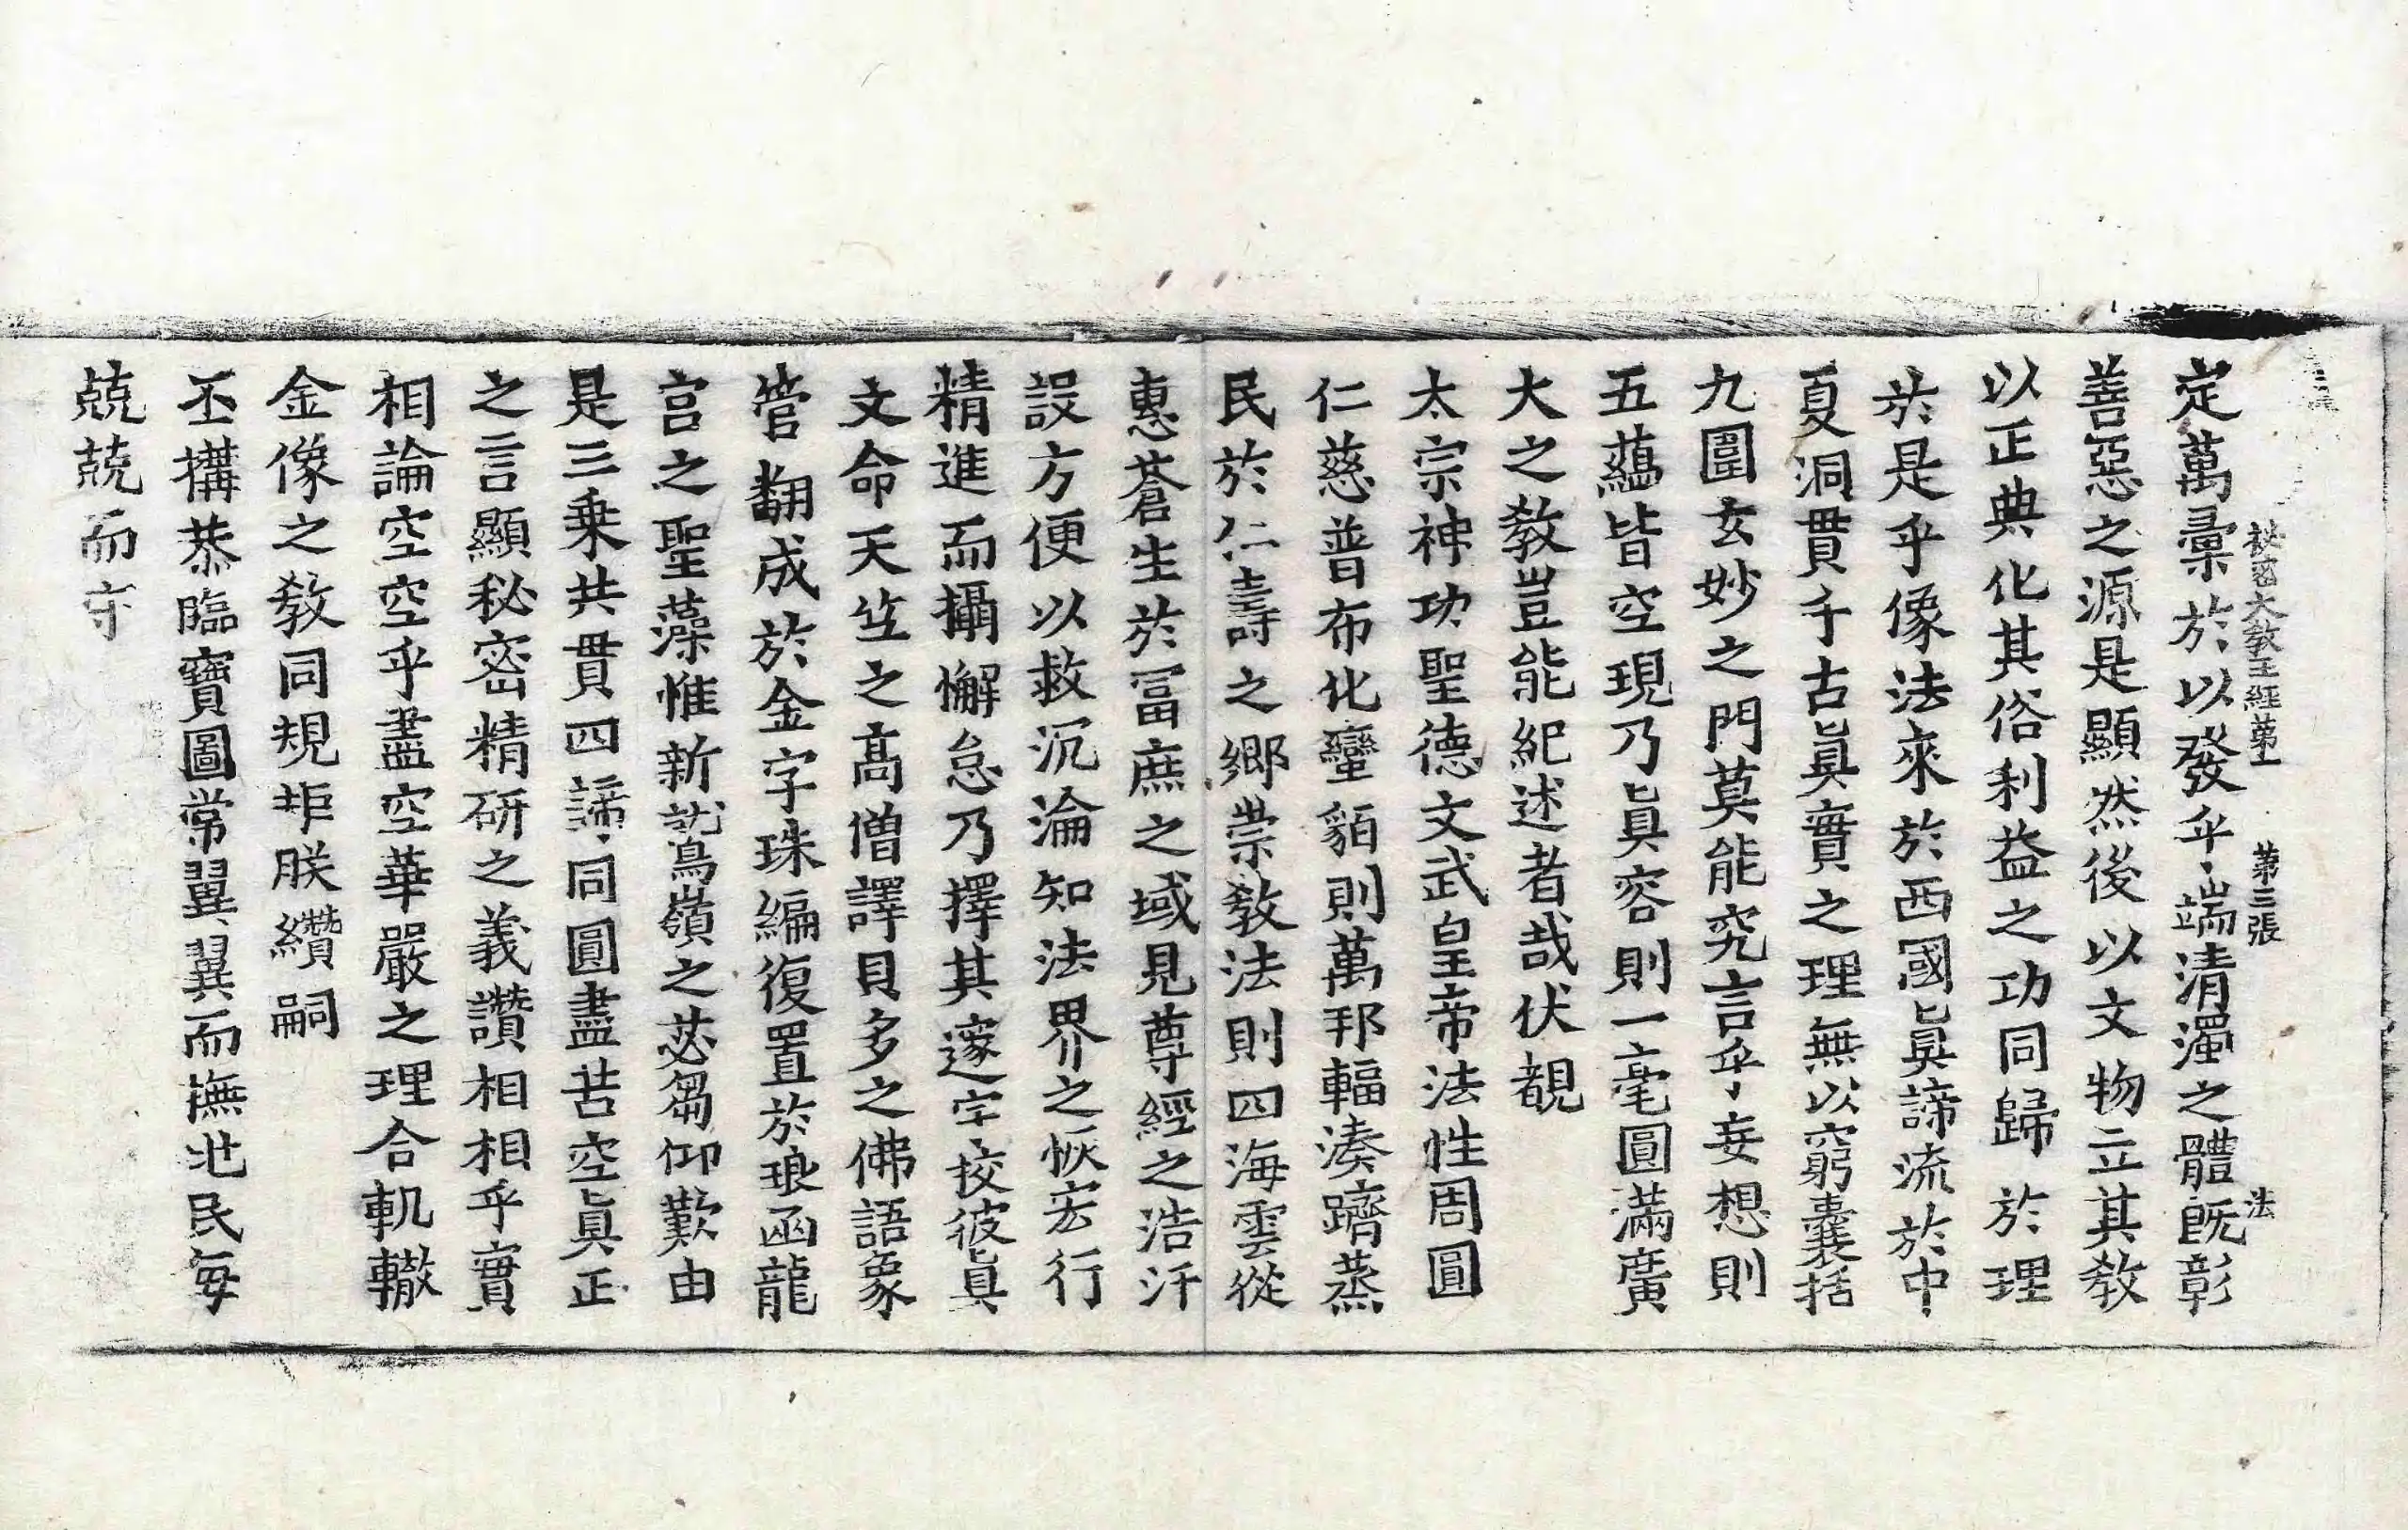 秘密大教王經第一 第三張 法
定萬彙於以發乎端清濁之體旣彰
善惡之源是顯然後以文物立其敎
以正典化其俗利益之功同歸於理
於是乎像法來於西國眞諦流於中
夏洞貫千古眞實之理無以窮囊括
九圍玄妙之門莫能究言乎妄想則
五蘊皆空現乃眞容則一毫圓滿廣
大之敎豈能紀述者哉伏覩
太宗神功聖德文武皇帝法性周圓
仁慈普布化蠻貊則萬邦輻湊躋蒸
民於仁壽之鄉崇敎法則四海雲從
惠蒼生於冨庶之域見尊經之浩汗
設方便以救沉淪知法界之恢宏行
精進而攝懈怠乃擇其邃字挍彼眞
文命天竺之高僧譯貝多之佛語象
管翻成於金字珠編復置於琅函龍
宮之聖藻惟新鷲嶺之苾蒭仰歎由
是三乗共貫四諦同圓盡苦空眞正
之言顯秘密精研之義讚相相乎實
相論空空乎盡空華嚴之理合軌轍
金像之敎同規矩朕纘嗣
丕搆恭臨寶圖常翼翼而撫兆民每
兢兢而守